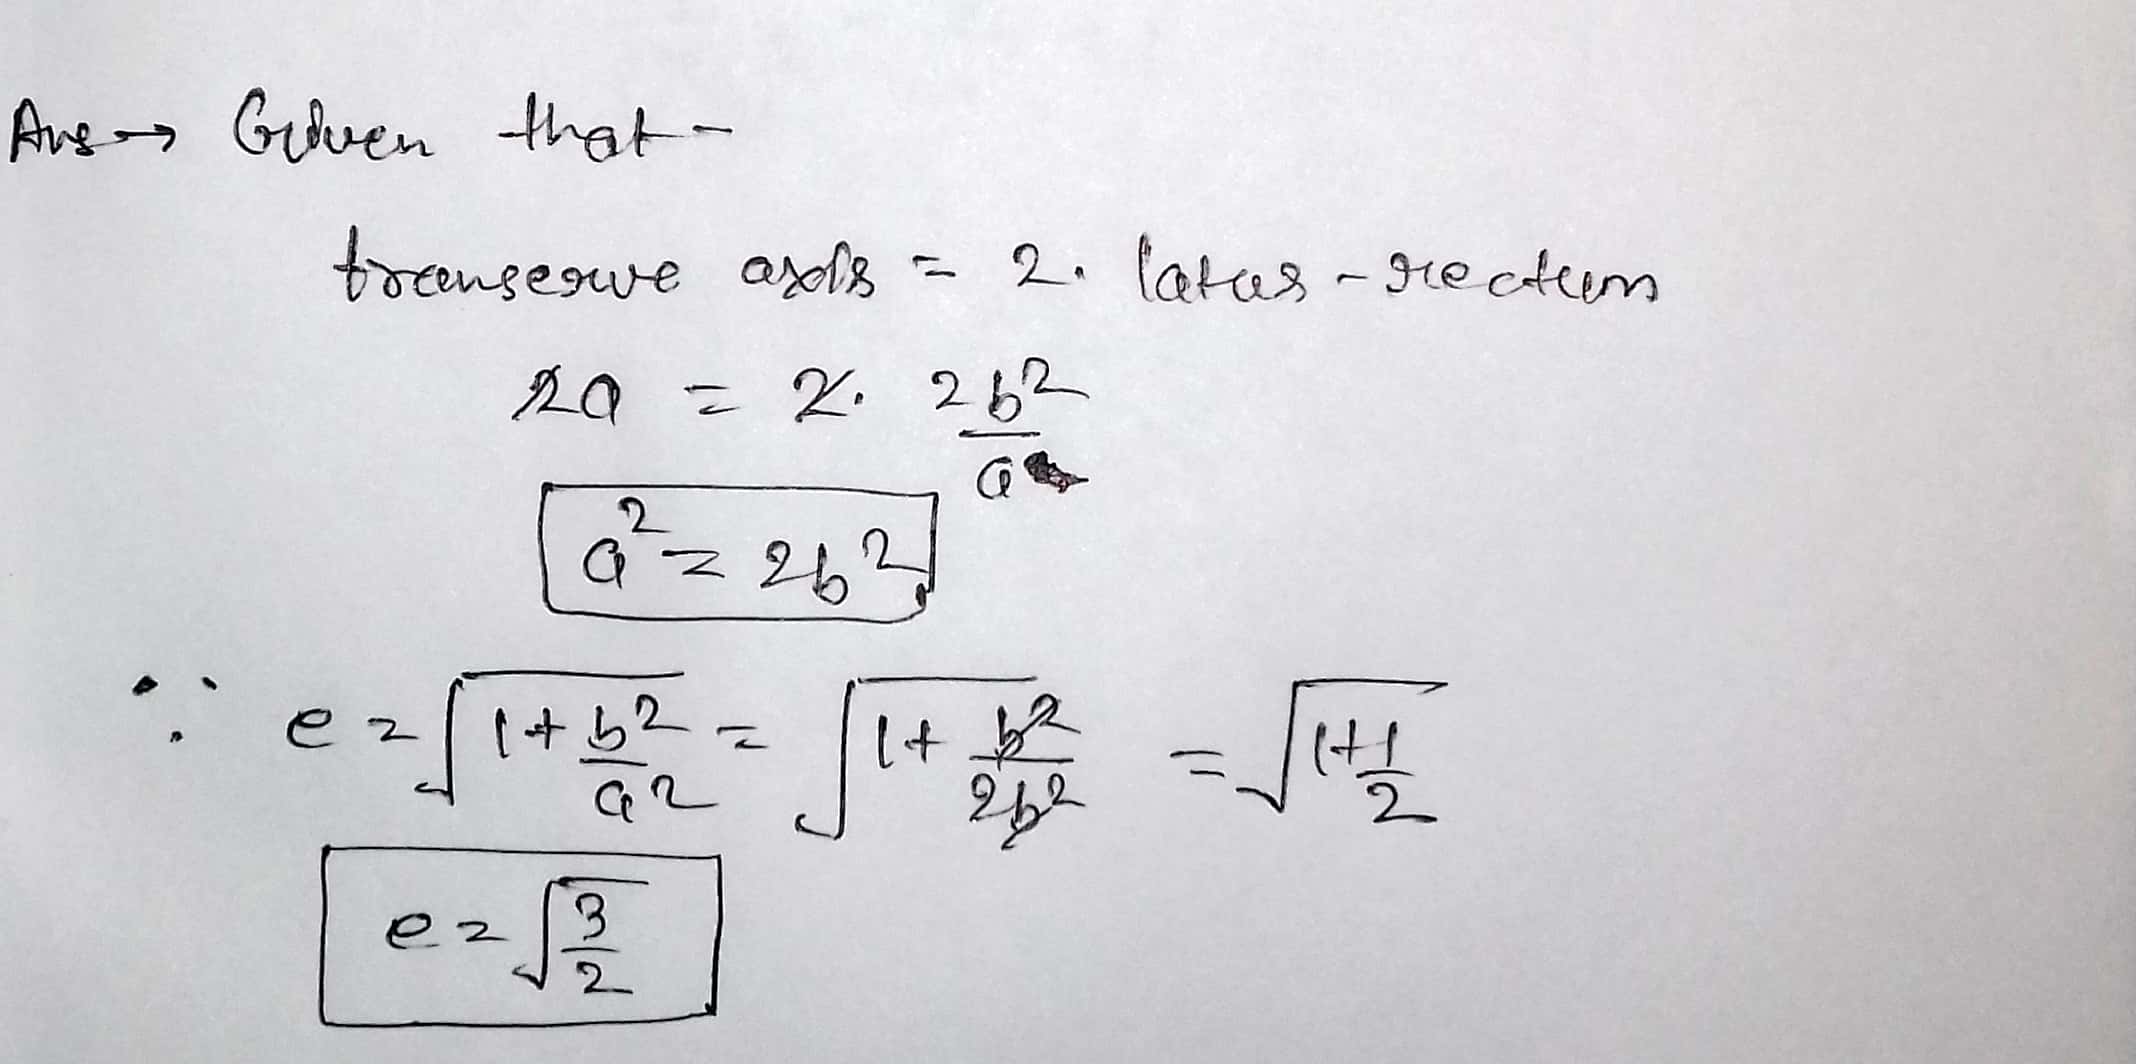 Ans → Given that -
transerve axis = 2. latus - rectum
2a = 2. 2b²/a
a² = 2b²
∵ e = √(1 + b²/a²) = √(1 + b²/2b²) = √(1 + 1/2)
e = √(3/2)